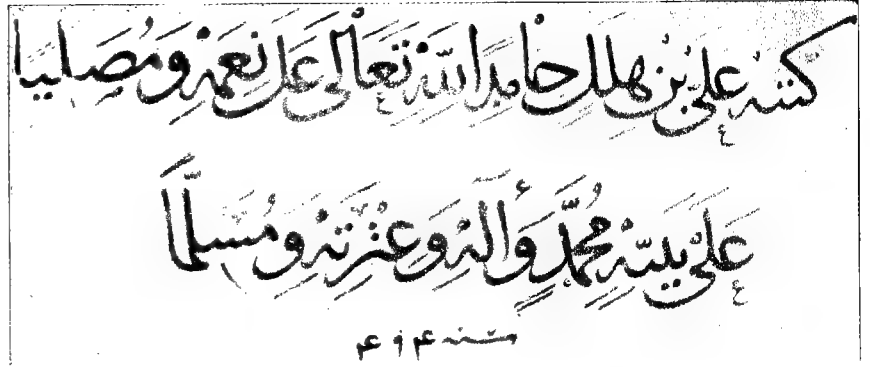 كتبه علي بن هلال حامدا لله تعالى على نعمه ومصليا
على نبيه محمد وآله وعترته ومسلما
سنة